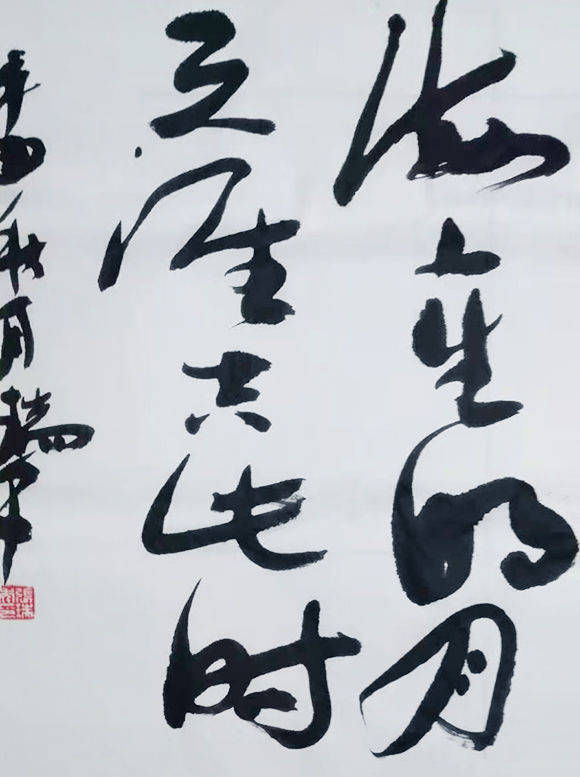 海上生明月
天涯共此时
秋月